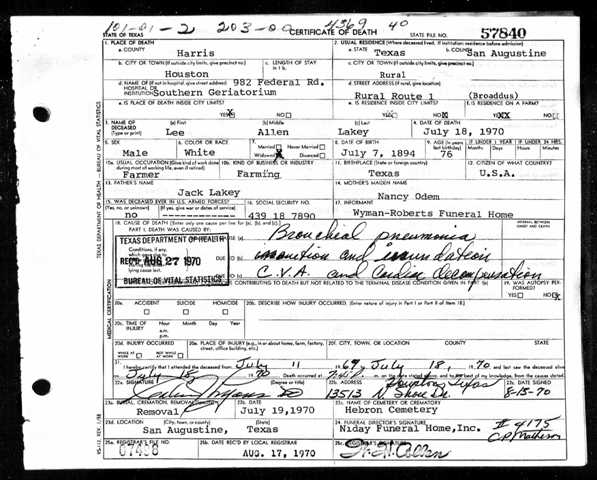 101-01-2 203-00 4369 40
STATE OF TEXAS CERTIFICATE OF DEATH STATE FILE NO. 57840
1. PLACE OF DEATH 2. USUAL RESIDENCE (Where deceased lived. If institution: residence before admission)
a. COUNTY Harris a. STATE Texas b. COUNTY San Augustine
b. CITY OR TOWN (If outside city limits, give precinct no.) c. LENGTH OF STAY c. CITY OR TOWN (If outside city limits, give precinct no.)
Houston Rural
d. NAME OF (If not in hospital, give street address) 982 Federal Rd. d. STREET ADDRESS (If rural, give location)
HOSPITAL OR INSTITUTION Southern Geriatorium Rural Route 1 (Broaddus)
e. IS PLACE OF DEATH INSIDE CITY LIMITS? e. IS RESIDENCE INSIDE CITY LIMITS? f. IS RESIDENCE ON A FARM?
YES NO YES NO YES NO
3. NAME OF DECEASED (Type or print) (a) First (b) Middle (c) Last 4. DATE OF DEATH
Lee Allen Lakey July 18, 1970
5. SEX 6. COLOR OR RACE 7. Married Never Married 8. DATE OF BIRTH 9. AGE (In years last birthday) IF UNDER 1 YEAR IF UNDER 24 HRS.
Male White Widowed Divorced July 7, 1894 76 Months Days Hours Minutes
10a. USUAL OCCUPATION (Give kind of work done during most of working life, even if retired) 10b. KIND OF BUSINESS OR INDUSTRY 11. BIRTHPLACE (State or foreign country) 12. CITIZEN OF WHAT COUNTRY?
Farmer Farming Texas U.S.A.
13. FATHER'S NAME 14. MOTHER'S MAIDEN NAME
Jack Lakey Nancy Odem
15. WAS DECEASED EVER IN U.S. ARMED FORCES? 16. SOCIAL SECURITY NO. 17. INFORMANT
(Yes, no, or unknown) (If yes, give war or dates of service)
no 439 18 7890 Wyman-Roberts Funeral Home
18. CAUSE OF DEATH (Enter only one cause per line for (a), (b), and (c).) INTERVAL BETWEEN ONSET AND DEATH
PART I. DEATH WAS CAUSED BY: Bronchial pneumonia
TEXAS DEPARTMENT OF HEALTH
Conditions, if any, which
REC'D AUG 27 1970 inanition and
lying cause last. C.V.A. and Cardiac decompensation
BUREAU OF VITAL STATISTICS
CONTRIBUTING TO DEATH BUT NOT RELATED TO THE TERMINAL DISEASE CONDITION GIVEN IN PART I(a) 19. WAS AUTOPSY PERFORMED?
YES NO
20a. ACCIDENT SUICIDE HOMICIDE 20b. DESCRIBE HOW INJURY OCCURRED. (Enter nature of injury in Part I or Part II of item 18.)
20c. TIME OF INJURY Hour Month Day Year
a.m.
p.m.
20d. INJURY OCCURRED 20e. PLACE OF INJURY (e.g., in or about home, farm, factory, street, office building, etc.) 20f. CITY, TOWN, OR LOCATION COUNTY STATE
WHILE AT WORK NOT WHILE AT WORK
21. I hereby certify that I attended the deceased from July 11 1969 July 18, 1970 and last saw the deceased alive
July 18 1970 Death occurred at on the date stated above; and to the best of my knowledge, from the causes stated.
22a. SIGNATURE (Degree or title) 22b. ADDRESS Houston, Texas 22c. DATE SIGNED
DO 13513 N Shore Dr. 8-13-70
23a. BURIAL, CREMATION, REMOVAL (Specify) 23b. DATE 23c. NAME OF CEMETERY OR CREMATORY
Removal July 19, 1970 Hebron Cemetery
23d. LOCATION (City, town, or county) (State) 24. FUNERAL DIRECTOR'S SIGNATURE
San Augustine, Texas Niday Funeral Home, Inc. # 4175
C.P. Matheson
25a. REGISTRAR'S FILE NO. 25b. DATE REC'D BY LOCAL REGISTRAR 25c. REGISTRAR'S SIGNATURE
07458 AUG. 17, 1970
TEXAS DEPARTMENT OF HEALTH - BUREAU OF VITAL STATISTICS
MEDICAL CERTIFICATION